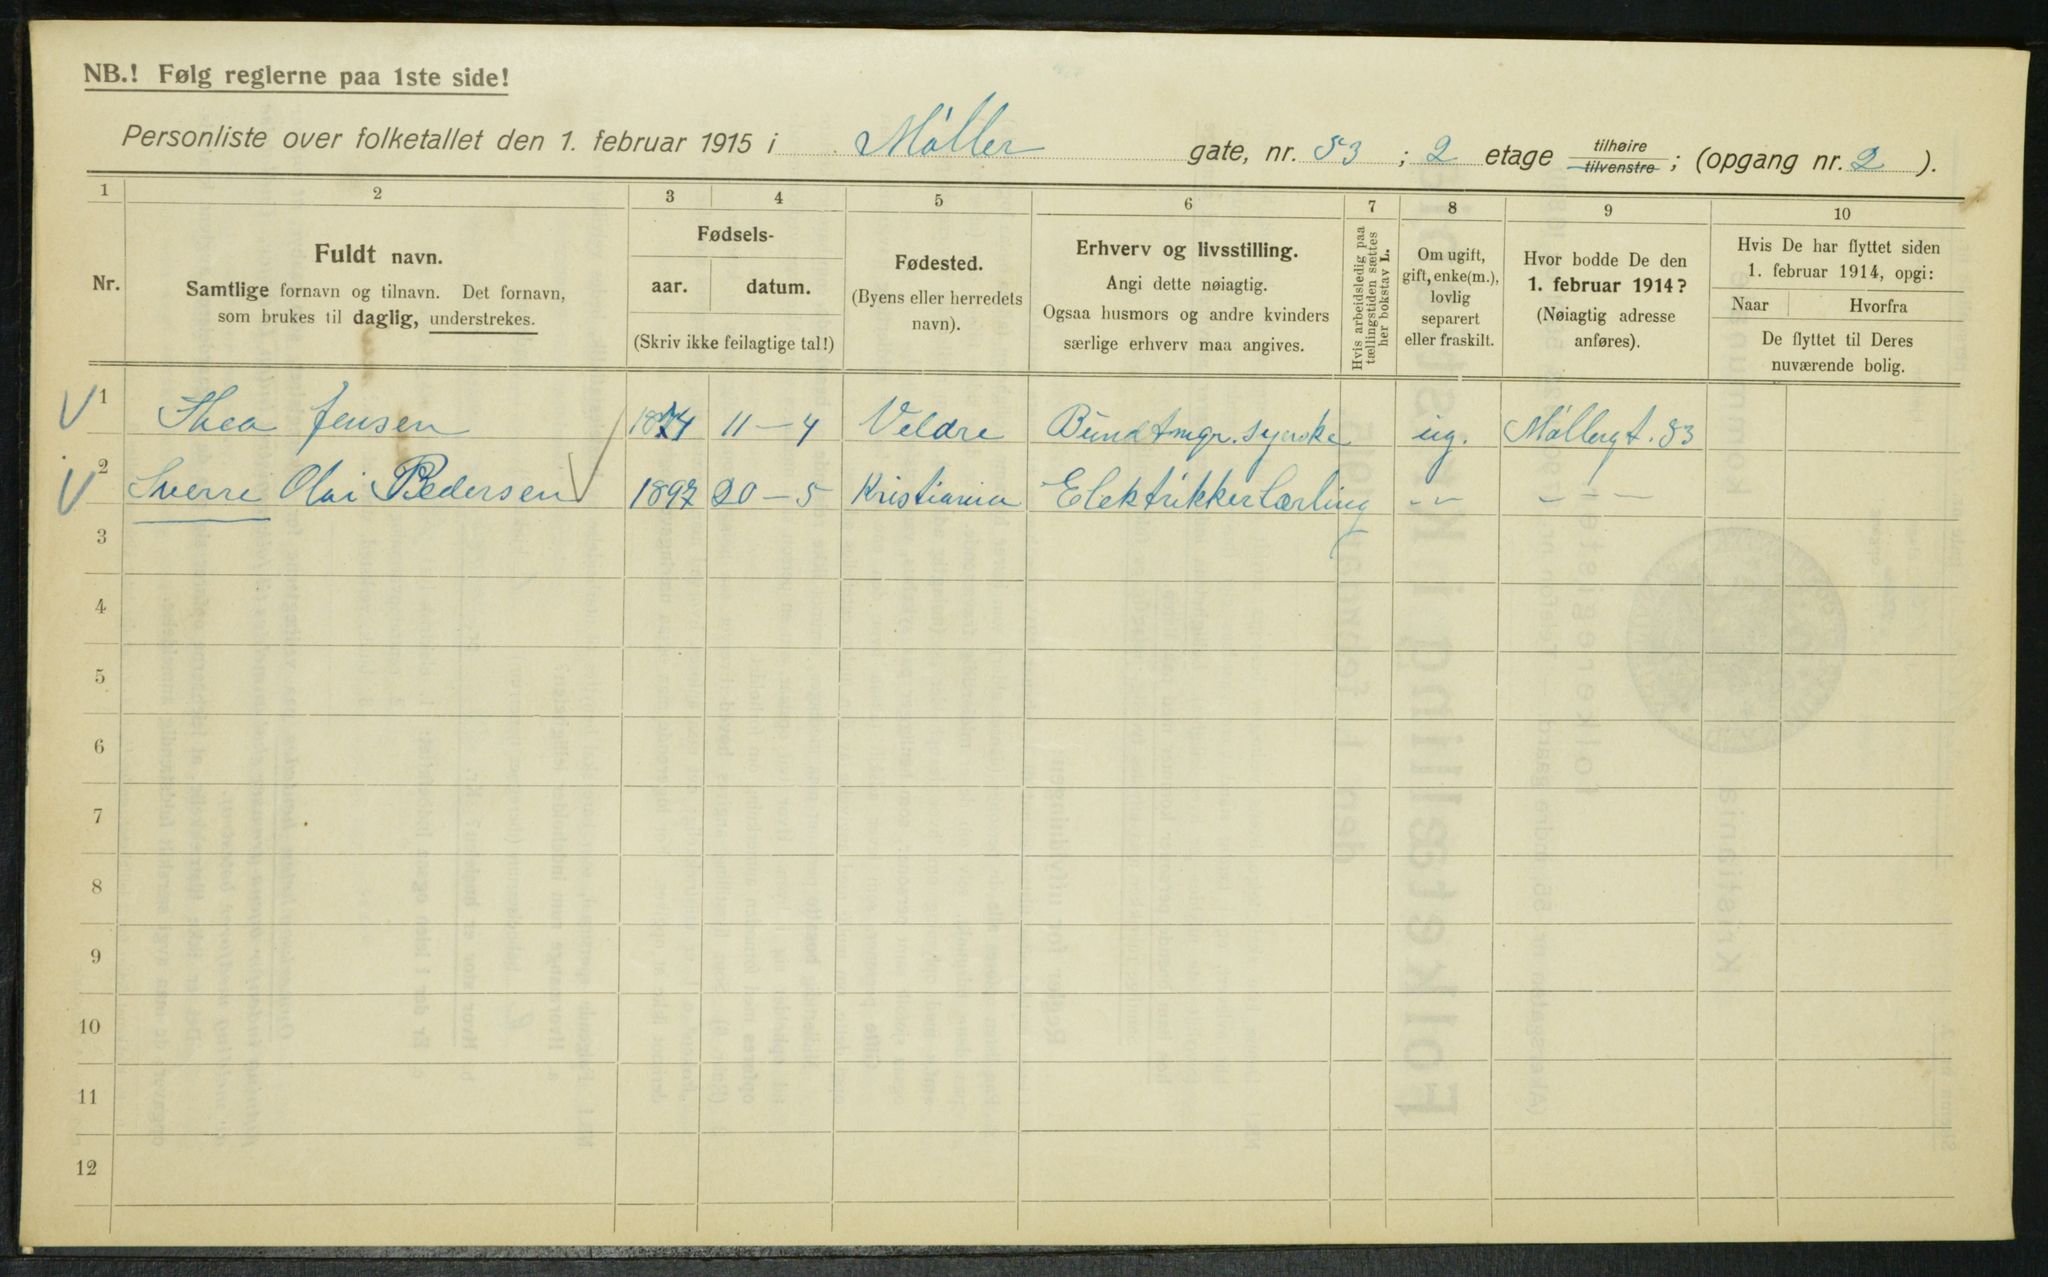 NB.! Følg reglerne paa 1ste side!
Personliste over folketallet den 1. februar 1915 i Møller gate, nr. 53 ; 2 etage tilhøire tilvenstre ; (opgang nr. 2 ).
1 2 3 4 5 6 7 8 9 10
Nr.
Fuldt navn.
Samtlige fornavn og tilnavn. Det fornavn,
som brukes til daglig, understrekes.
Fødsels-
aar. datum.
(Skriv ikke feilagtige tal!)
Fødested.
(Byens eller herredets
navn).
Erhverv og livsstilling.
Angi dette nøiagtig.
Ogsaa husmors og andre kvinders
særlige erhverv maa angives.
Hvis arbeidsledig paa
tællingstiden sættes
her bokstav L.
Om ugift,
gift, enke(m.),
lovlig
separert
eller fraskilt.
Hvor bodde De den
1. februar 1914?
(Nøiagtig adresse
anføres).
Hvis De har flyttet siden
1. februar 1914, opgi:
Naar Hvorfra
De flyttet til Deres
nuværende bolig.
1 Thea Jensen 1874 11-4 Veldre Bundtmgr. syerske ug. Møllergt. 53
2 Sverre Olai Pedersen 1897 20-5 Kristiania Elektrikkerlærling -„- -„-
3
4
5
6
7
8
9
10
11
12